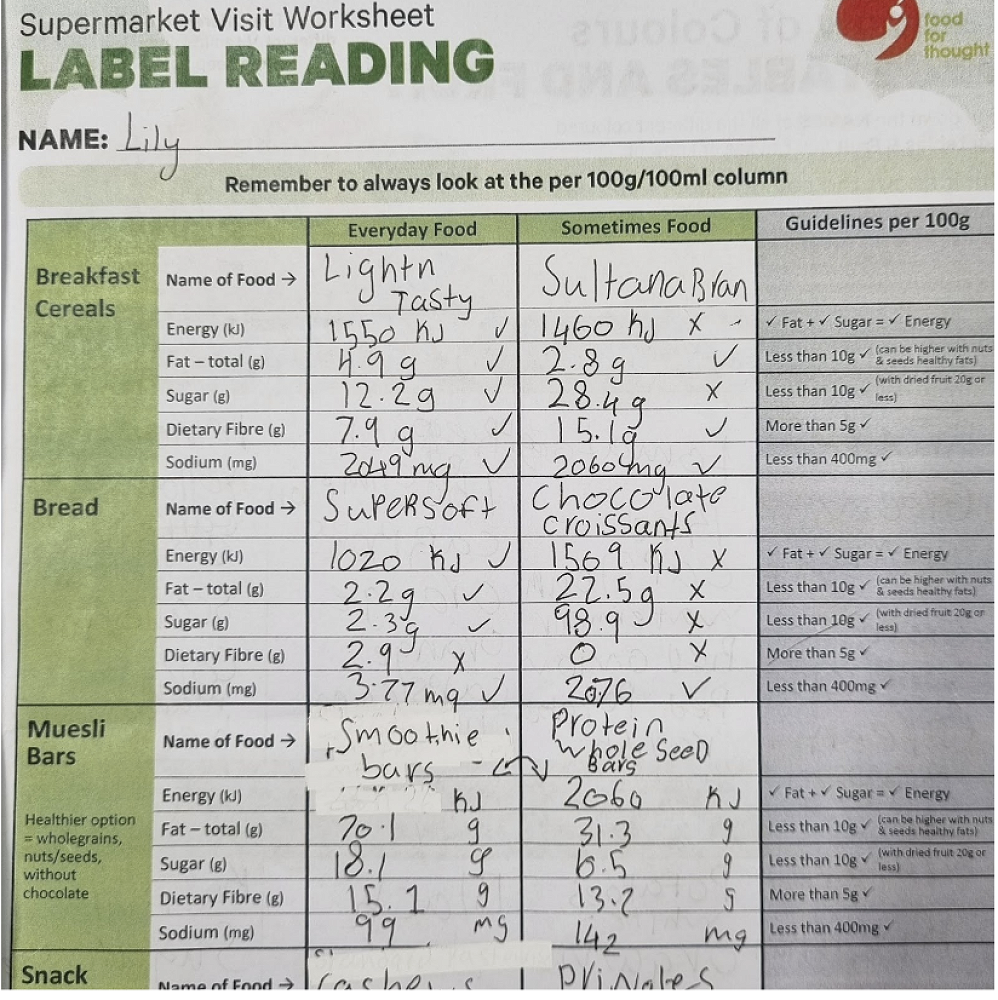 Supermarket Visit Worksheet
LABEL READING
food
for
thought
NAME: Lily
Remember to always look at the per 100g/100ml column
Everyday Food Sometimes Food Guidelines per 100g
Breakfast
Cereals
Name of Food → Lightn Tasty SultanaBran
Energy (kJ) 1550 KJ ✓ 1460 KJ X ✓ Fat + ✓ Sugar = ✓ Energy
Fat – total (g) 4.9 g ✓ 2.8 g ✓ Less than 10g ✓ (can be higher with nuts & seeds healthy fats)
Sugar (g) 12.2g ✓ 28.4g X Less than 10g ✓ (with dried fruit 20g or less)
Dietary Fibre (g) 7.9 g ✓ 15.1g ✓ More than 5g ✓
Sodium (mg) 2049 mg ✓ 2060mg ✓ Less than 400mg ✓
Bread
Name of Food → Supersoft Chocolate croissants
Energy (kJ) 1020 KJ ✓ 1569 KJ X ✓ Fat + ✓ Sugar = ✓ Energy
Fat – total (g) 2.2g ✓ 22.5g X Less than 10g ✓ (can be higher with nuts & seeds healthy fats)
Sugar (g) 2.3g ✓ 98.9 X Less than 10g ✓ (with dried fruit 20g or less)
Dietary Fibre (g) 2.9 X 0 X More than 5g ✓
Sodium (mg) 3.77 mg ✓ 2076 ✓ Less than 400mg ✓
Muesli
Bars
Healthier option
= wholegrains,
nuts/seeds,
without
chocolate
Name of Food → Smoothie bars Protein whole SeeD Bars
Energy (kJ) KJ 2060 KJ ✓ Fat + ✓ Sugar = ✓ Energy
Fat – total (g) 70.1 g 31.3 g Less than 10g ✓ (can be higher with nuts & seeds healthy fats)
Sugar (g) 18.1 g 6.5 g Less than 10g ✓ (with dried fruit 20g or less)
Dietary Fibre (g) 15.1 g 13.2 g More than 5g ✓
Sodium (mg) 99 mg 142 mg Less than 400mg ✓
Snack
Name of Food → Pringles